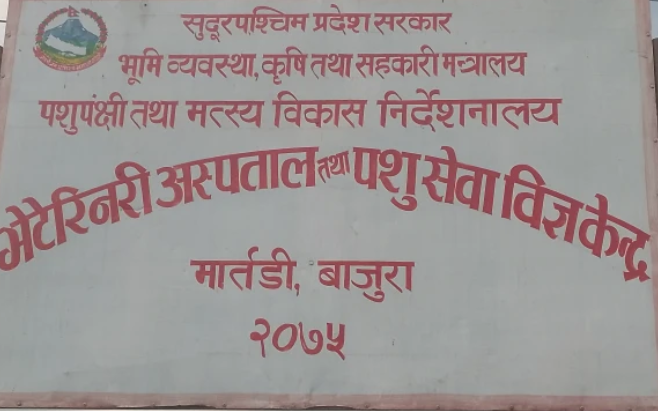 सुदूरपश्चिम प्रदेश सरकार
भूमि व्यवस्था, कृषि तथा सहकारी मन्त्रालय
पशुपक्षी तथा मत्स्य विकास निर्देशनालय
भेटेरिनरी अस्पताल तथा पशु सेवा विज्ञ केन्द्र
मार्तडी, बाजुरा
२०७५